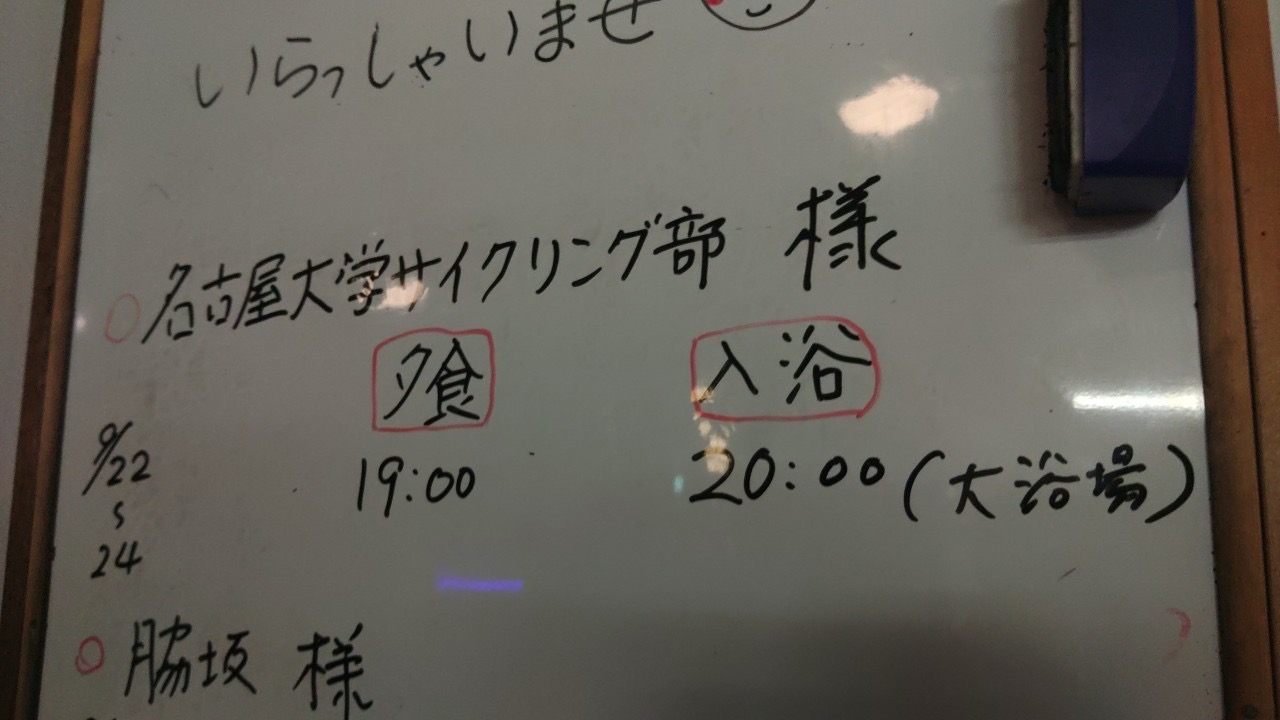 いらっしゃいませ
○名古屋大学サイクリング部 様
夕食 入浴
9/22 19:00 20:00(大浴場)
~
24
○脇坂 様